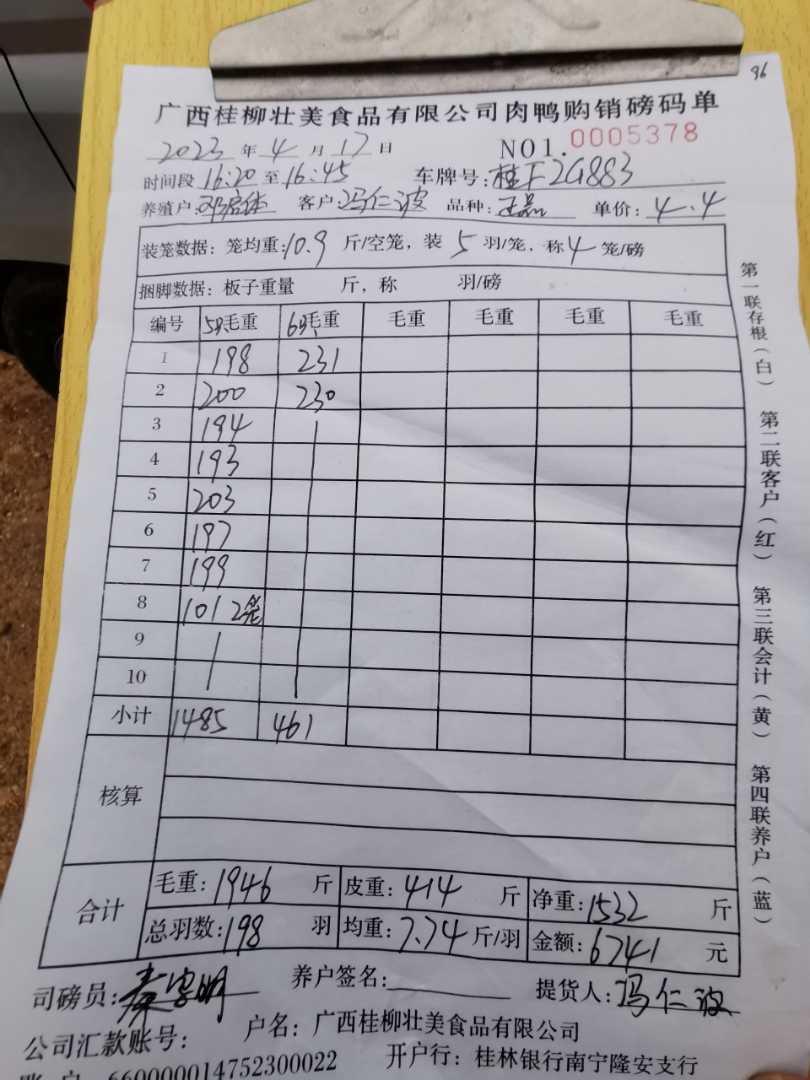 96
广西桂柳壮美食品有限公司肉鸭购销磅码单
2023 年 4 月 17 日 NO1. 0005378
时间段 16:20 至 16:45 车牌号: 桂F2G883
养殖户: 客户: 冯仁波 品种: 单价: 4.4
装笼数据: 笼均重: 10.9 斤/空笼, 装 5 羽/笼, 称 4 笼/磅
捆脚数据: 板子重量 斤, 称 羽/磅
编号 5只毛重 6只毛重 毛重 毛重 毛重 毛重
1 198 231
2 200 230
3 194
4 193
5 203
6 197
7 199
8 101 2笼
9
10
小计 1485 461
核算
合计 毛重: 1946 斤 皮重: 414 斤 净重: 1532 斤
总羽数: 198 羽 均重: 7.74 斤/羽 金额: 6741 元
司磅员: 养户签名: 提货人: 冯仁波
公司汇款账号: 户名: 广西桂柳壮美食品有限公司
账 户 660000014752300022 开户行: 桂林银行南宁隆安支行
第一联存根(白) 第二联客户(红) 第三联会计(黄) 第四联养户(蓝)